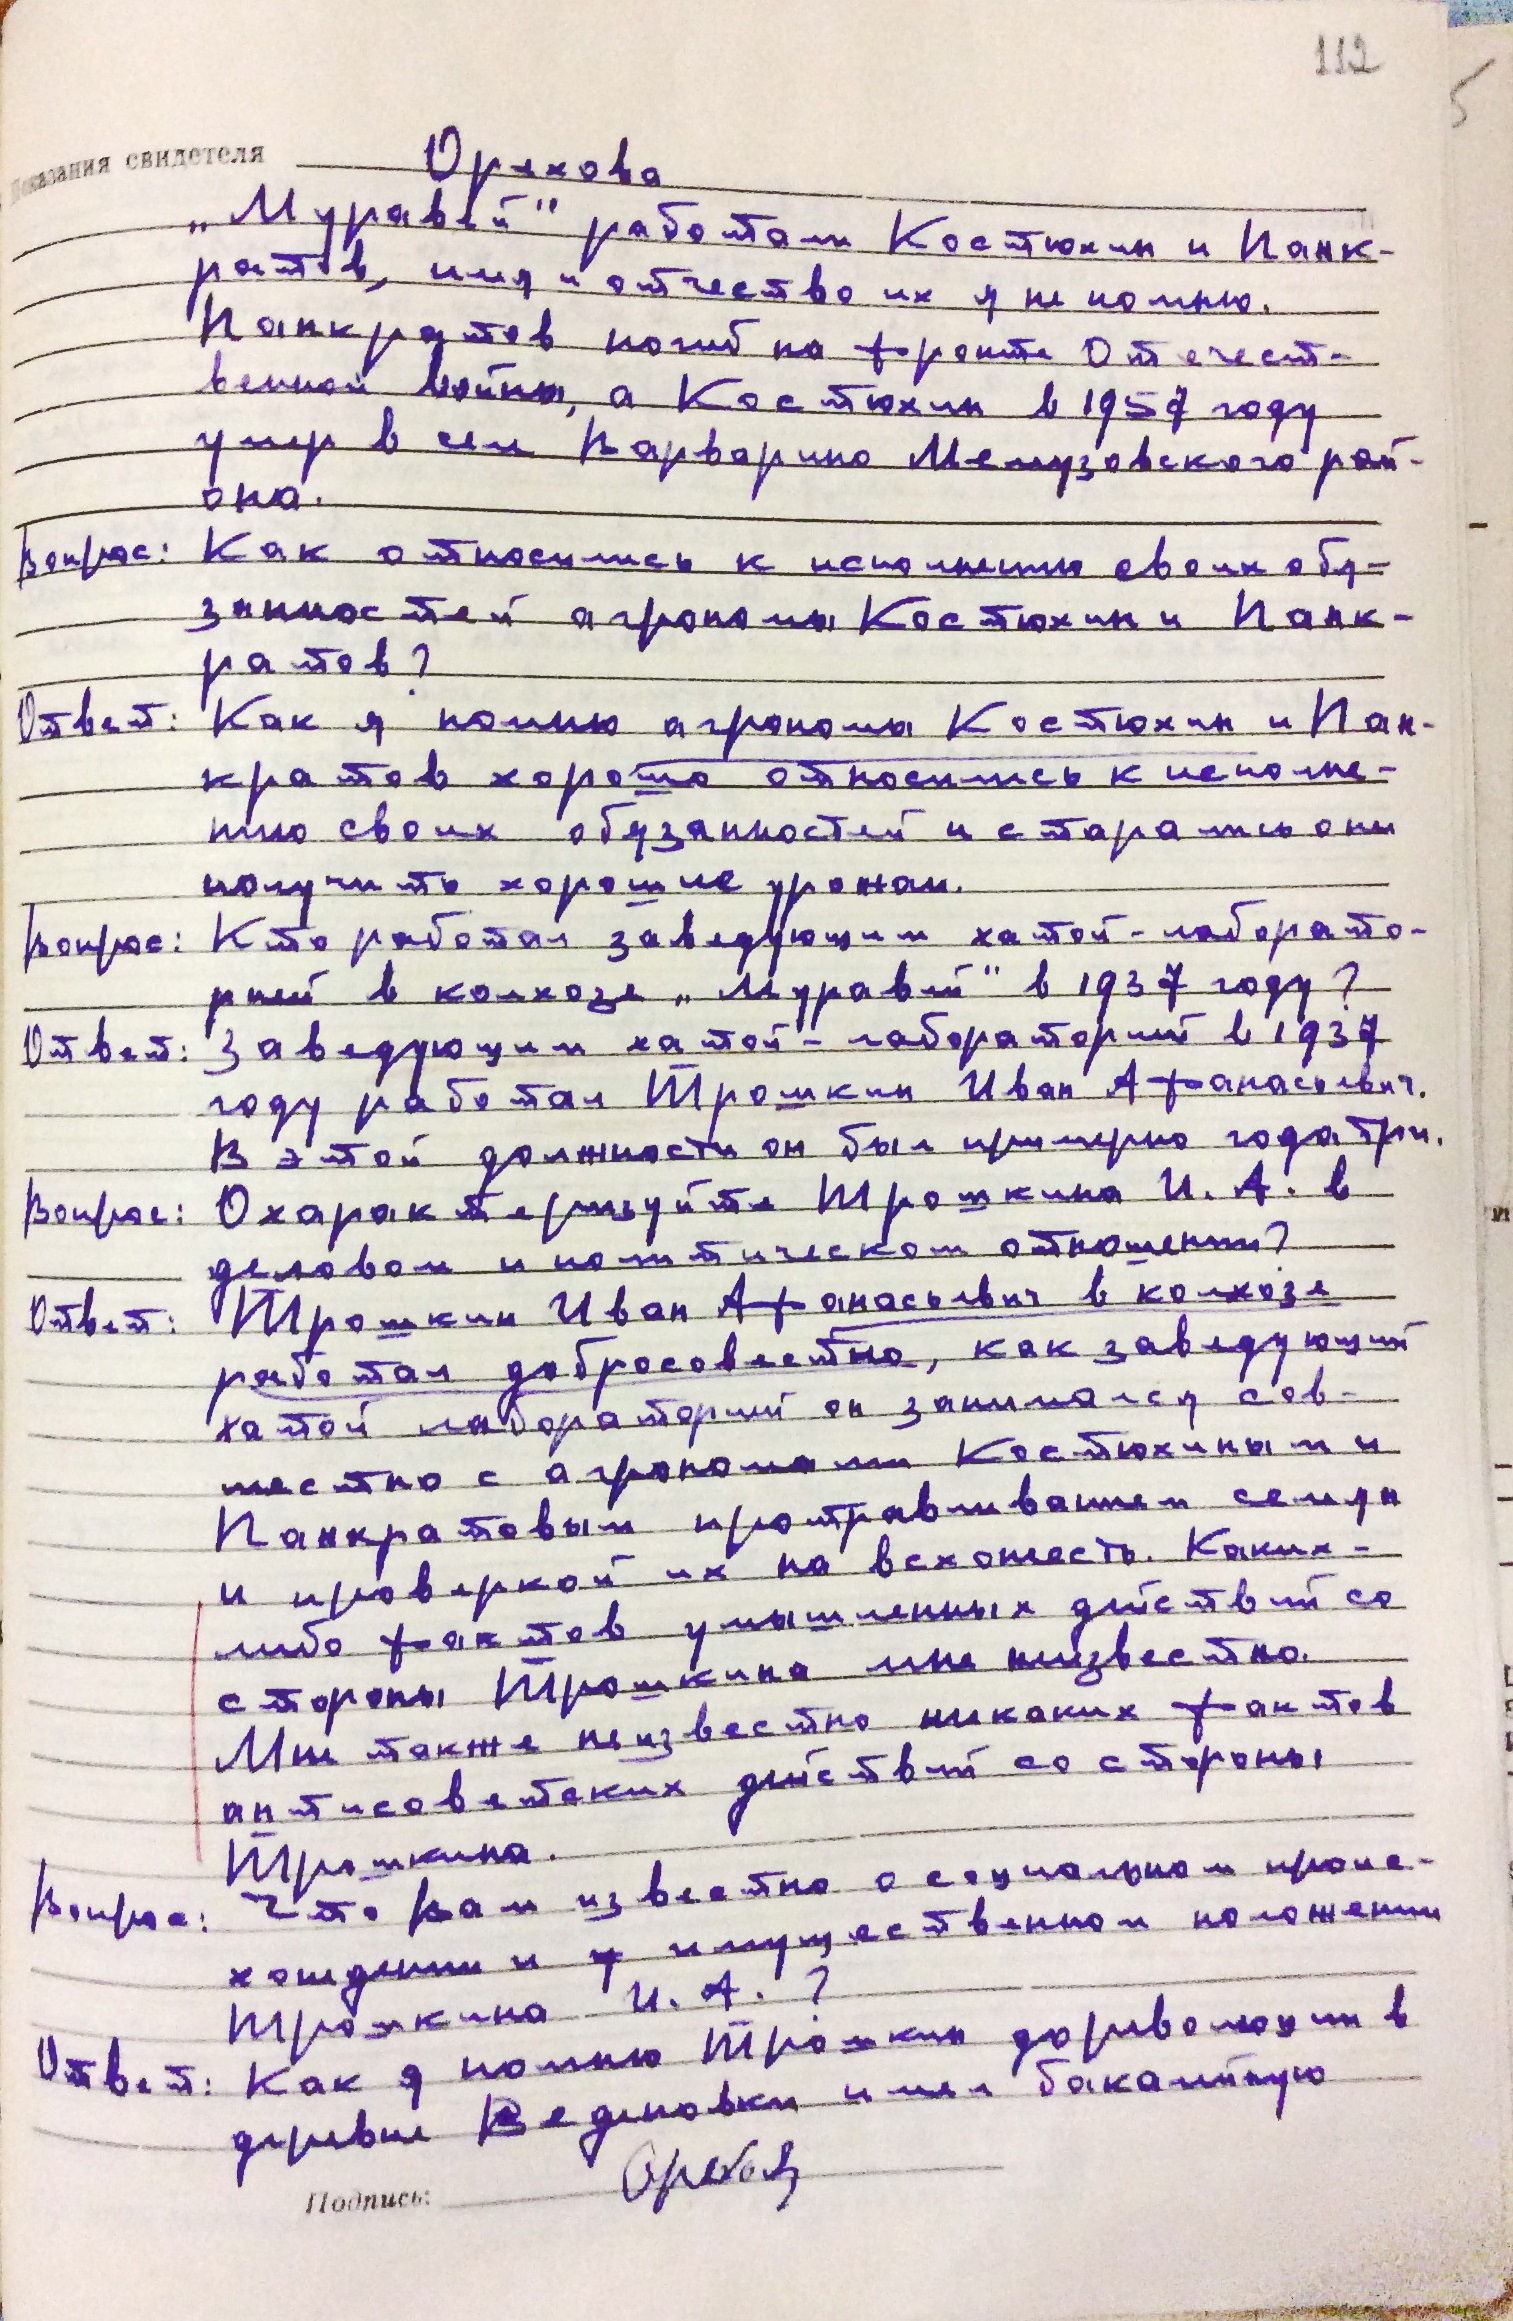 112
5
Показания свидетеля Орехова
„Муравей" работали Костюхин и Панк-
ратов, имя и отчество их я не помню.
Панкратов погиб на фронте Отечест-
венной войны, а Костюхин в 1957 году
умер в селе Варварино Мелеузовского рай-
она.
Вопрос: Как относились к исполнению своих обя-
занностей агрономы Костюхин и Панк-
ратов?
Ответ: Как я помню агрономы Костюхин и Пан-
кратов хорошо относились к исполне-
нию своих обязанностей и старались они
получить хорошие урожаи.
Вопрос: Кто работал заведующим хатой-лаборато-
рией в колхозе „Муравей" в 1937 году?
Ответ: Заведующим хатой-лабораторией в 1937
году работал Трошкин Иван Афанасьевич.
В этой должности он был примерно года три.
Вопрос: Охарактеризуйте Трошкина И. А. в
деловом и политическом отношении?
Ответ: Трошкин Иван Афанасьевич в колхозе
работал добросовестно, как заведующий
хатой лабораторией он занимался сов-
местно с агрономами Костюхиным и
Панкратовым протравливанием семян
и проверкой их на всхожесть. Каких-
либо фактов умышленных действий со
стороны Трошкина мне неизвестно.
Мне также неизвестно никаких фактов
антисоветских действий со стороны
Трошкина.
Вопрос: Что Вам известно о социальном проис-
хождении и имущественном положении
Трошкина И. А. ?
Ответ: Как я помню Трошкин до революции в
деревне Веденовки имел бакалейную
Подпись: Орехов